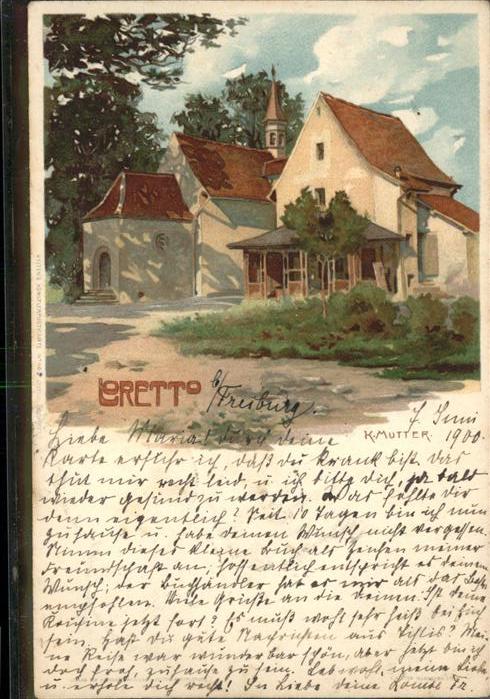 LORETTO b/Freiburg.
K. MUTTER.
7. Juni 1900.
Liebe Maria! durch deine
Karte erfuhr ich, daß du krank bist. das
thut mir recht leid, u. ich bitte dich, bald
wieder gesund zu werden. Was fehlte dir
denn eigentlich? Seit 10 Tagen bin ich nun
zuhause u. habe deinen Wunsch nicht vergessen.
Nimm dieses kleine Buch als Zeichen meiner
Freundschaft an; hoffentlich entspricht es deinem
Wunsch; der Buchhändler hat es mir als das Beste
empfohlen. Viele Grüße an die deinen. Ist deine
Cousine jetzt fort? Es muß wohl sehr heiß bei Euch
sein. Hast du gute Nachrichten aus Tiflis? Mei-
ne Reise war wunderbar schön, aber jetzt bin ich
doch froh, zuhause zu sein. Leb wohl, meine Liebe
u. erhole dich recht! In Liebe deine